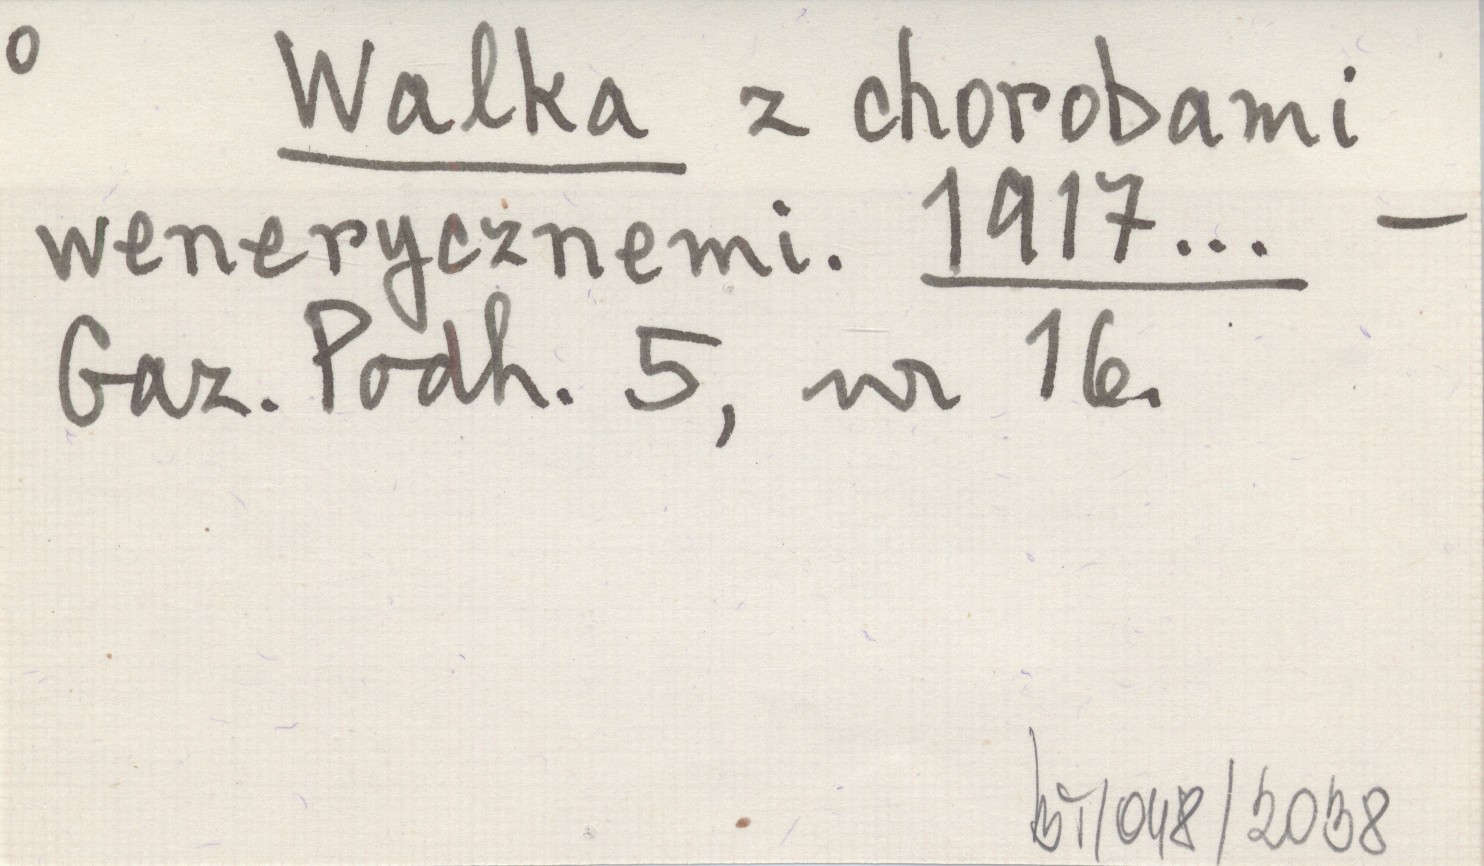 o Walka z chorobami
wenerycznemi. 1917... —
Gaz. Podh. 5, nr 16.
BT/048/2038